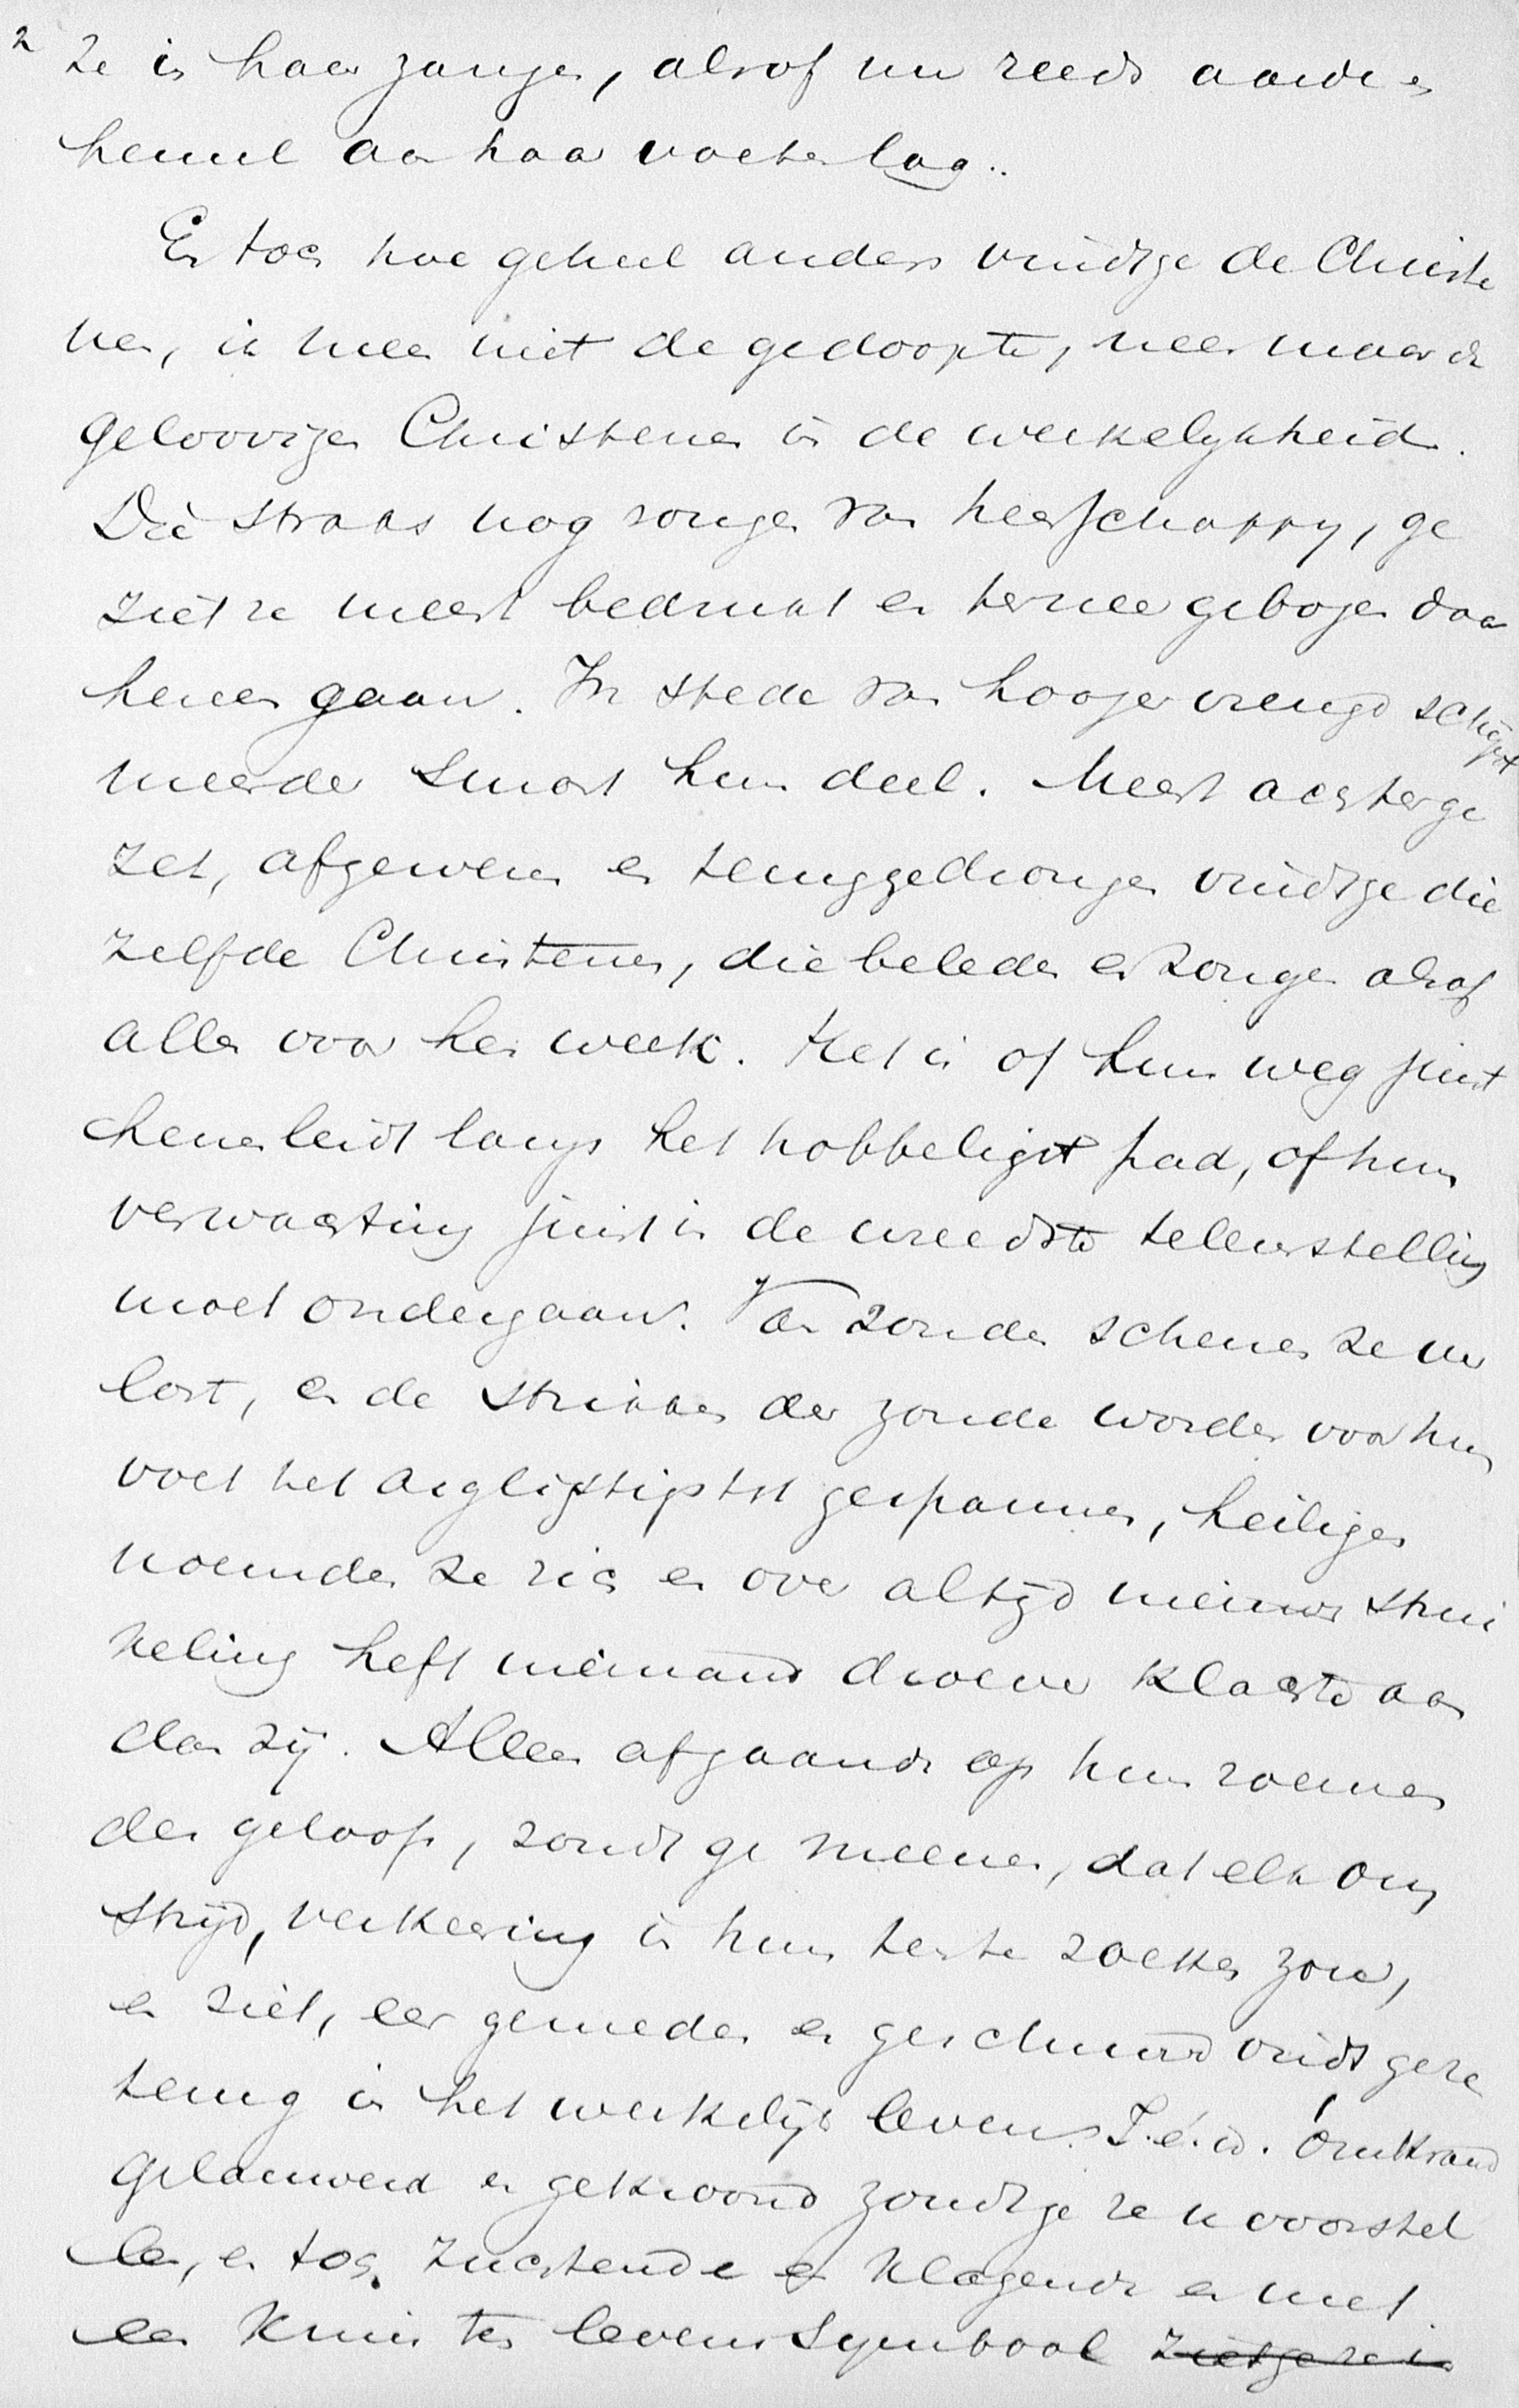 2 Ze in haar zangen, alsof nu reeds aarde en
hemel aan haar voeten lag..
En toch hoe geheel anders vindt ge de Christe
nen, ik meen niet de gedoopte, neen maar de
geloovige Christenen in de werkelykheid.
Die straks nog zongen van heerschappy, ge
ziet ze meest bedrukt en terneergebogen daar
henen gaan. In stede van hooger vreugd schijnt
meerder smart hun deel. Meest achterge
zet, afgewezen en teruggedrongen vindt ge die
zelfde Christenen, die beleden en zongen alsof
alles voor hen week. Het is of hun weg juist
henenleidt langs het hobbeligst pad, of hun
verwachting juist in de wreedste teleurstelling
moet ondergaan. Van zonden schenen ze ver
lost, en de strikken der zonde worden voor hun
voet het arglistigst gespannen, heiligen
noemden ze zich en over altijd nieuwe strui
keling heft niemand droever klachte aan
dan zij. Alleen afgaande op hun roemen
des geloofs, zoudt ge meenen, dat elk om
strijd, verkeering in hun tente zoeken zou,
en ziet, eer gemeden en geschuwd vindt ge ze
terug in het werkelijk leven. I.é.w. omkransd
gelauwerd en gekroond zoudt ge ze u voorstel
len, en toch zuchtende en klagende en met
een kruis ten levenssymbool ziet ge ze in